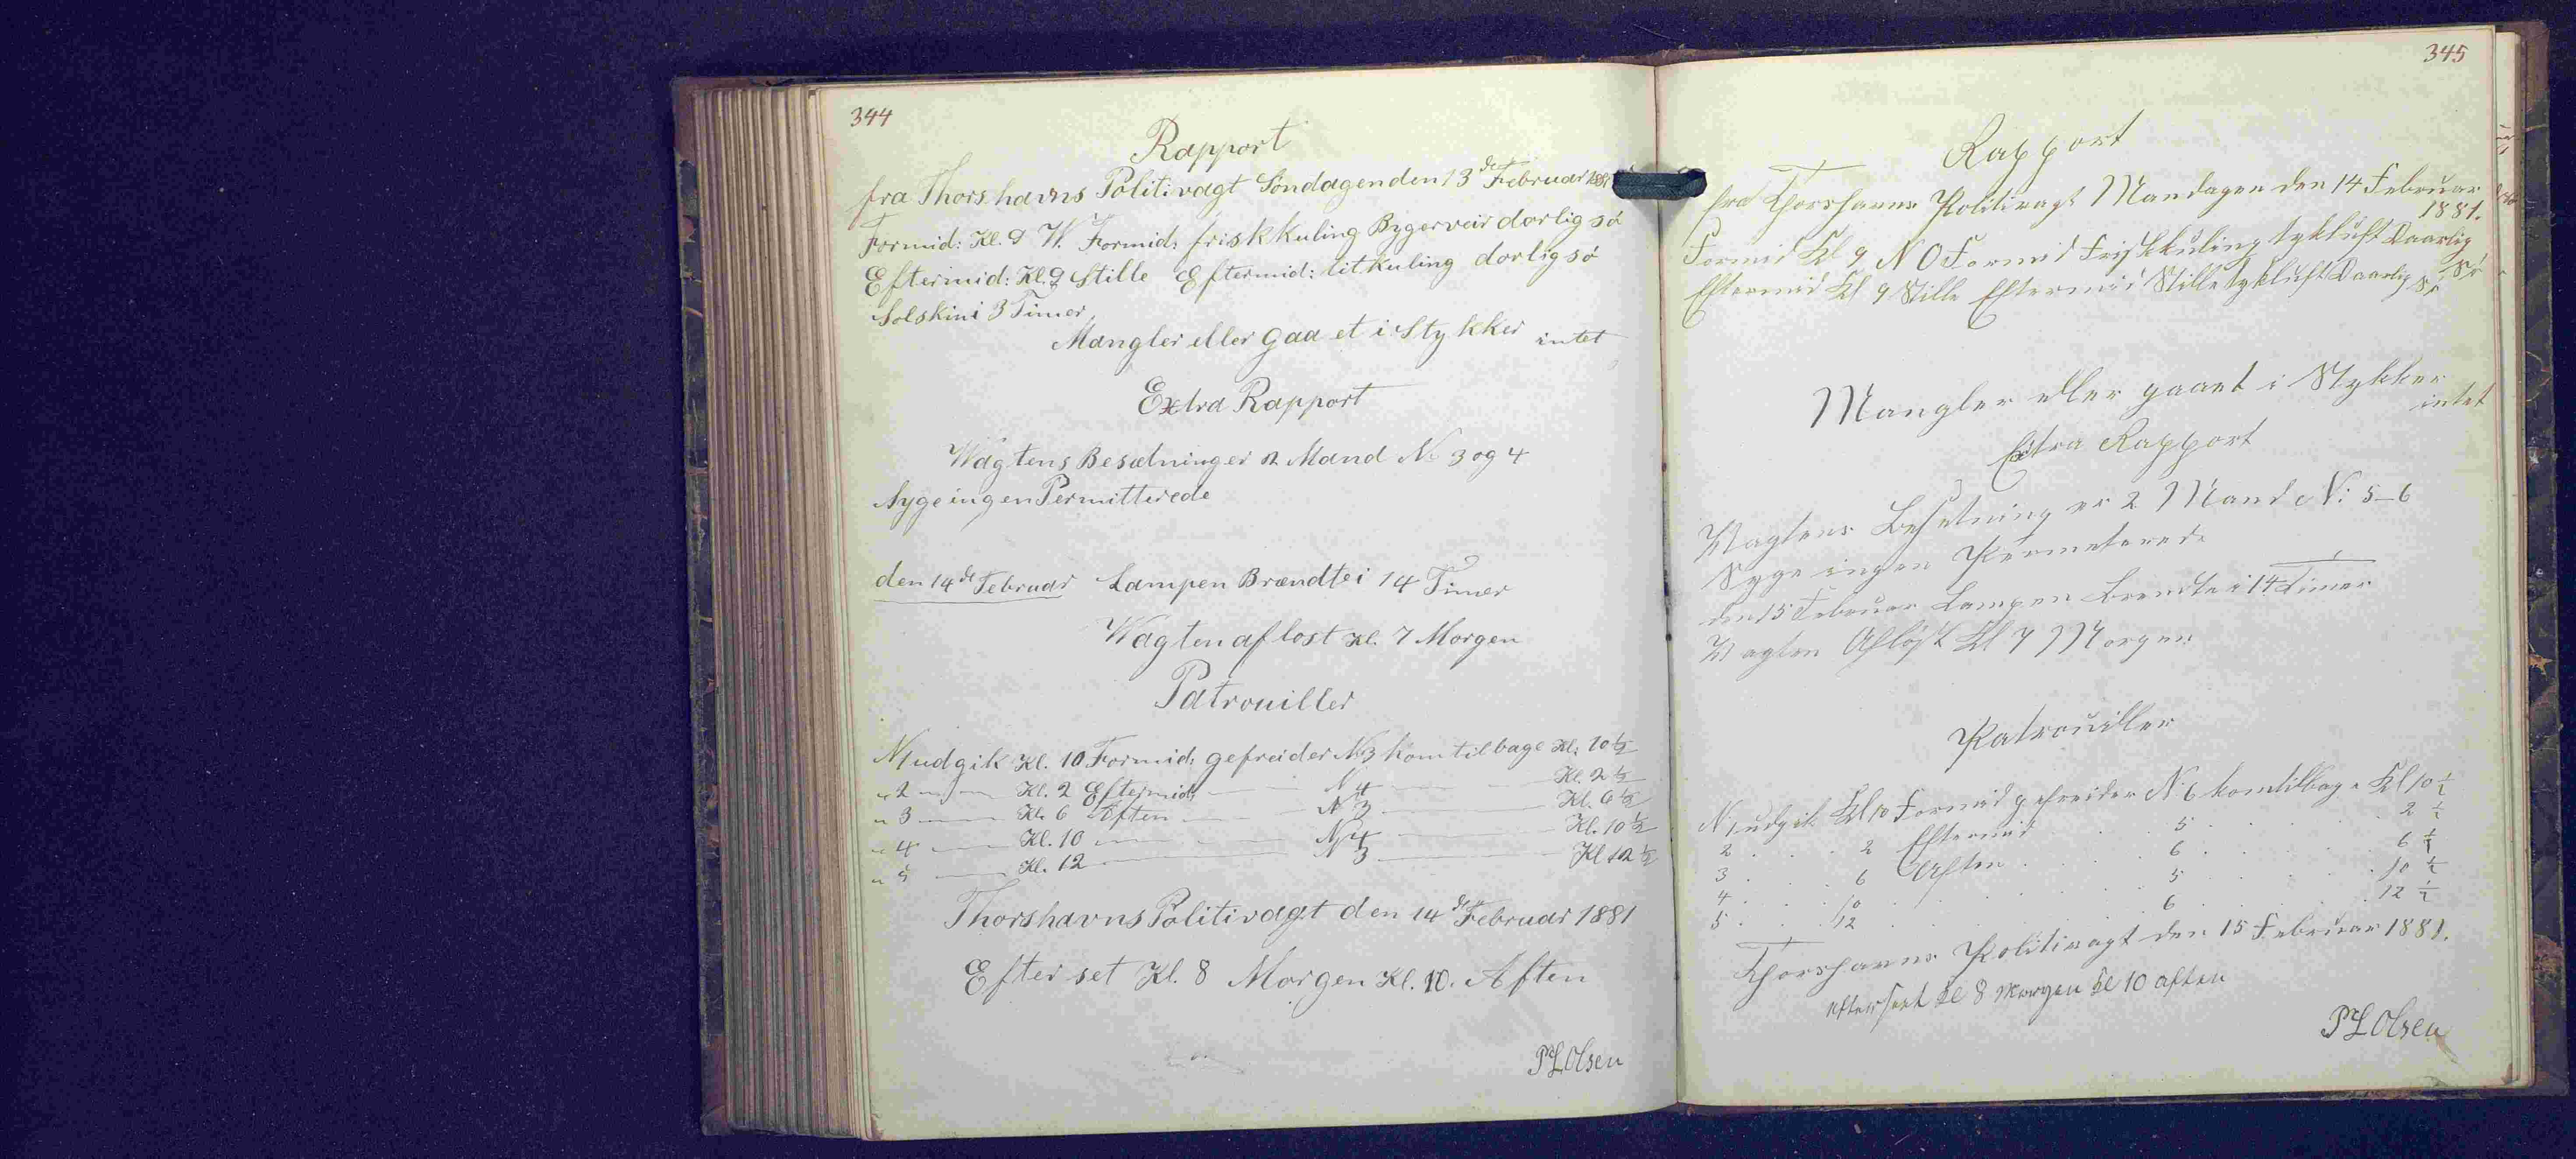 344
Rapport
fra Thorshavns Politivagt Søndagen den 13de Februar 1881
Formid: Kl. 9 W. Formid: frisk Kuling Bygerveir dorlig sø
Eftermid: Kl. 9 Stille Eftermid: litkuling dorlig sø
Solskin i 3 Timer
Mangler eller gaaet i Stykker intet
Extra Rapport
Wagtens Besætning er 2 Mand No 3 og 4
Syge ingen Permitterede
den 14de Februar Lampen Brændte i 14 Timer
Wagten aflost Kl. 7 Morgen
Patrouiller
N 1 udgik Kl. 10 Formid: gefreider N 3 kom tilbage Kl. 10 1/2
" 2 — — Kl. 2 Eftermid: — N 4 — Kl. 2 1/2
" 3 — — Kl. 6 Aften — N 3 — Kl. 6 1/2
" 4 — Kl. 10 — — N 4 — Kl. 10 1/2
" 5 — Kl. 12 — N 3 — Kl 12 1/2
Thorshavns Politivagt den 14de Februar 1881
Efter set Kl. 8 Morgen Kl. 10. Aften
PLOlsen
345
Rapport
fra Thorshavns Politivagt Mandagen den 14 Februar
1881.
Formid Kl 9 NO Formid Friskkuling tykluft Daarlig
Sø
Eftermid Kl 9 Stille Eftermid Stille tykluft Daarlig Sø
Mangler eller gaaet i Stykker
intet
Extra Rapport
Wagtens Besetning er 2 Mand N: 5-6
Syge ingen Permeterede
den 15 Februar Lampen brendte i 14 Timer
Wagten Afløst Kl 7 Morgen
Patrouiller
N 1 udgik Kl 10 Formid gefreider N 6 kom tilbage Kl 10 1/2
2 . . . 2 Eftermid . . 5 . . . 2 1/2
3 . . . 6 Aften . . . 6 . . . 6 1/2
4 . . . 10 . . . . 5 . . . 10 1/2
5 . . . 12 . . . . 6 . . . 12 1/2
Thorshavns Politivagt den 15 Februar 1881.
efterseet Kl 8 Morgen Kl 10 aften
PLOlsen